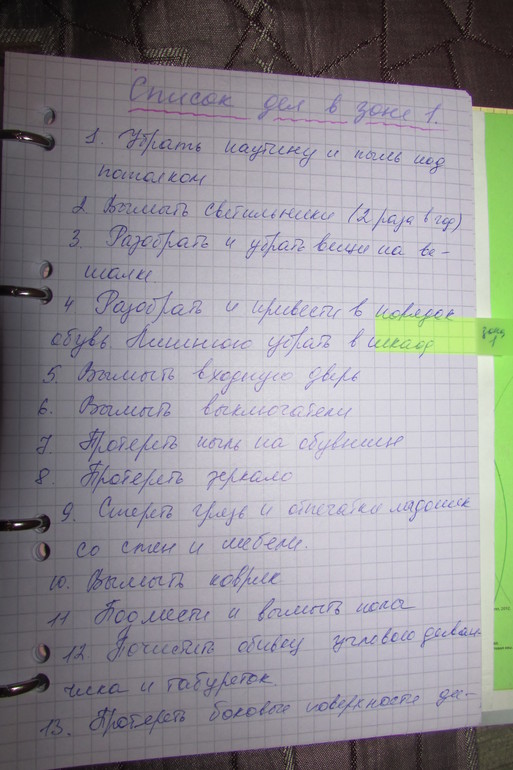 Список дел в зоне 1.
1. Убрать паутину и пыль под
потолком
2. Вымыть светильники (2 раза в год)
3. Разобрать и убрать вещи на ве-
шалке.
4. Разобрать и привести в порядок
обувь. Лишнюю убрать в шкаф
зона
1
5. Вымыть входную дверь
6. Вымыть выключатели
7. Протереть пыль на обувнице
8. Протереть зеркало
9. Стереть грязь и отпечатки ладошек
со стен и мебели.
10. Вымыть коврик
11 Подмести и вымыть полы
12. Почистить обивку углового диван-
чика и табуреток.
13. Протереть боковые поверхности ди-